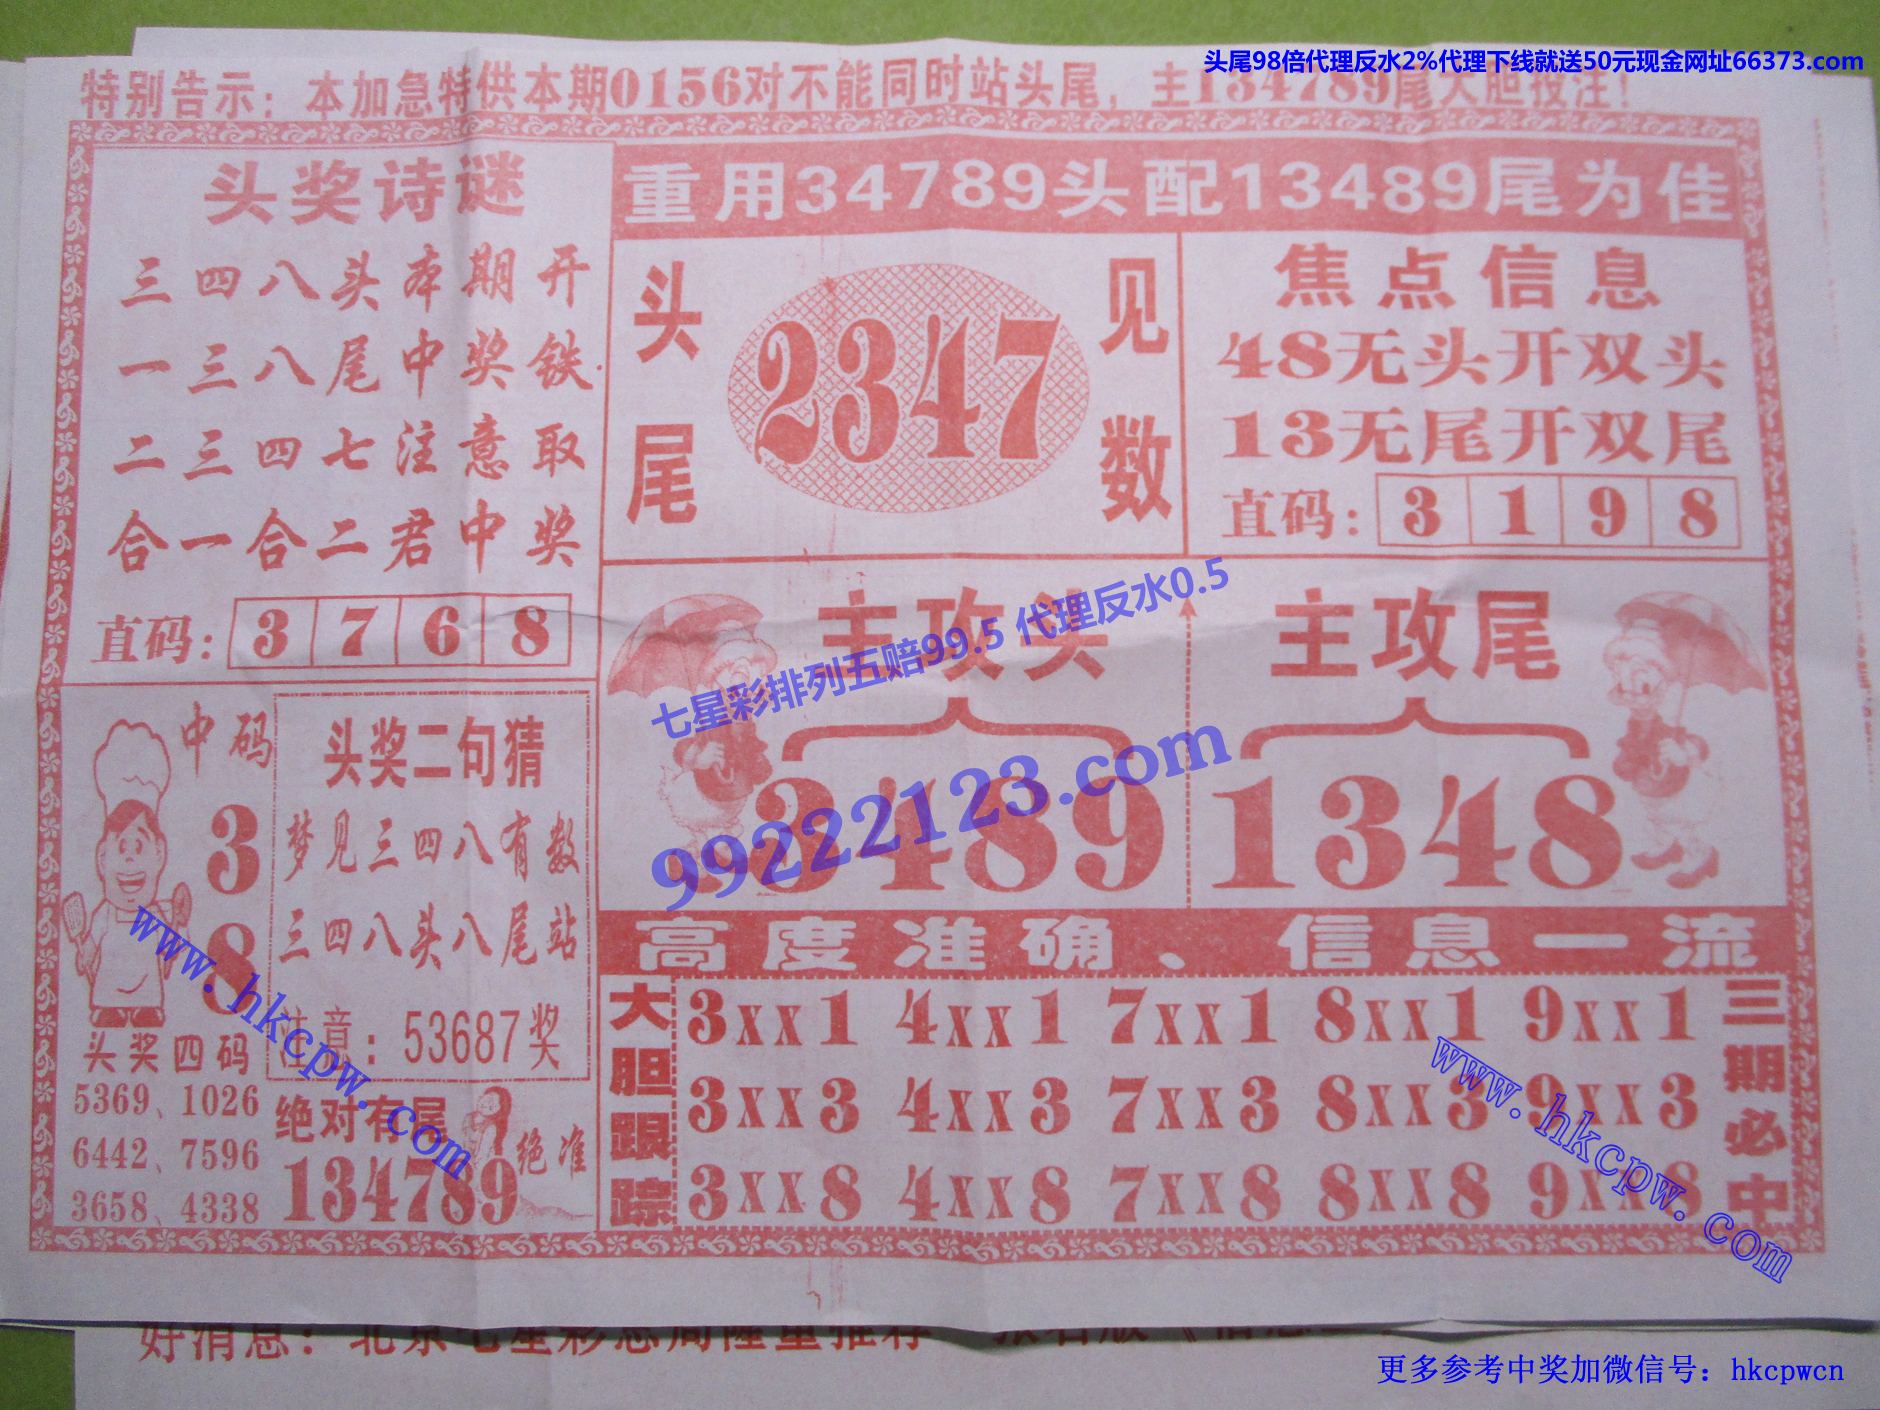 头尾98倍代理反水2%代理下线就送50元现金网址66373.com
特别告示：本加急特供本期0156对不能同时站头尾，主134789尾大胆投注！
头奖诗谜
三四八头本期开
一三八尾中奖铁
二三四七注意取
合一合二君中奖
直码：3768
重用34789头配13489尾为佳
头尾
2347
见数
焦点信息
48无头开双头
13无尾开双尾
直码：3198
主攻头
3489
主攻尾
1348
七星彩排列五赔99.5 代理反水0.5
99222123.com
中码
3
8
头奖四码
5369、1026
6442、7596
3658、4338
头奖二句猜
梦见三四八有数
三四八头八尾站
注意：53687奖
绝对有尾
134789
绝准
高度准确、信息一流
大胆跟踪
3xx1 4xx1 7xx1 8xx1 9xx1
3xx3 4xx3 7xx3 8xx3 9xx3
3xx8 4xx8 7xx8 8xx8 9xx8
三期必中
www.hkcpw.com
www.hkcpw.com
好消息：北京七星彩总局隆重推荐
更多参考中奖加微信号：hkcpwcn